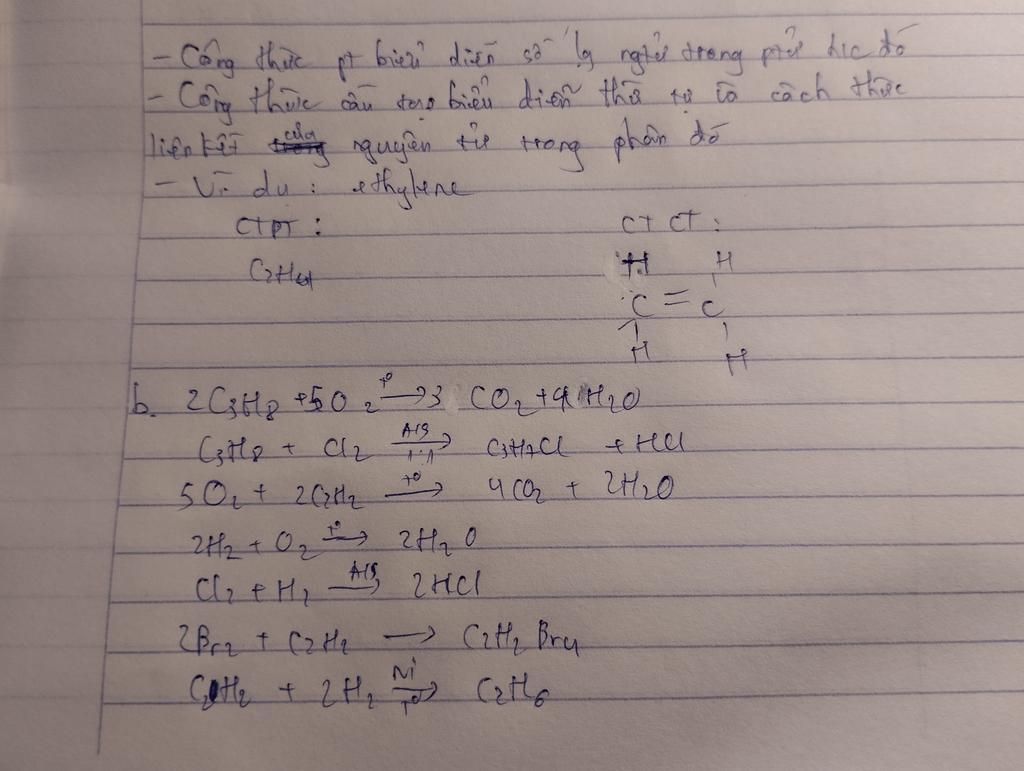 - Công thức pt biểu diễn số lg ngtử trong ptử h/c đó
- Công thức cấu tạo biểu diễn thứ tự và cách thức
liên kết của nguyên tử trong phân đó
- Ví dụ : ethylene
CTPT : CTCT :
C2H4 H H
C = C
H H
b. 2C3H8 + 5O2 t° → 3 CO2 + 4 H2O
C3H8 + Cl2 A/S → 1:1 C3H7Cl + HCl
5O2 + 2C2H2 t° → 4CO2 + 2H2O
2H2 + O2 t° → 2H2O
Cl2 + H2 A/S → 2HCl
2Br2 + C2H2 → C2H2Br4
C2H2 + 2H2 Ni → T° C2H6